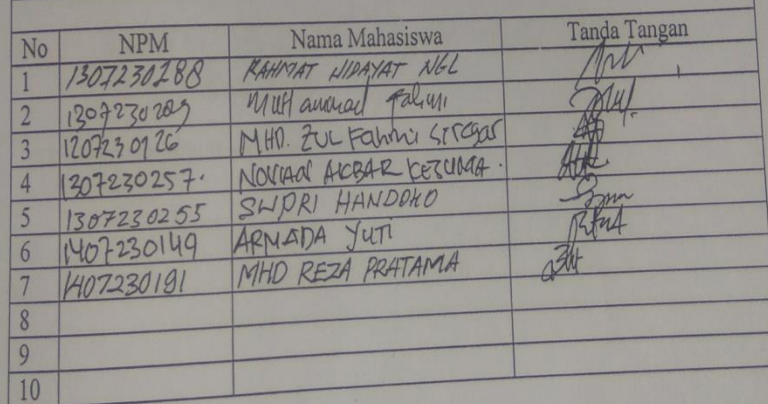 No NPM Nama Mahasiswa Tanda Tangan
1 1307230288 RAHMAT HIDAYAT NGL
2 1307230209 Muhammad Fahmi
3 1207230126 MHD. ZUL Fahmi Siregar
4 1307230257. NOVIAN AKBAR KESUMA.
5 1307230255 SUPRI HANDOKO
6 1407230149 ARMADA YUTI
7 1407230191 MHD REZA PRATAMA
8
9
10